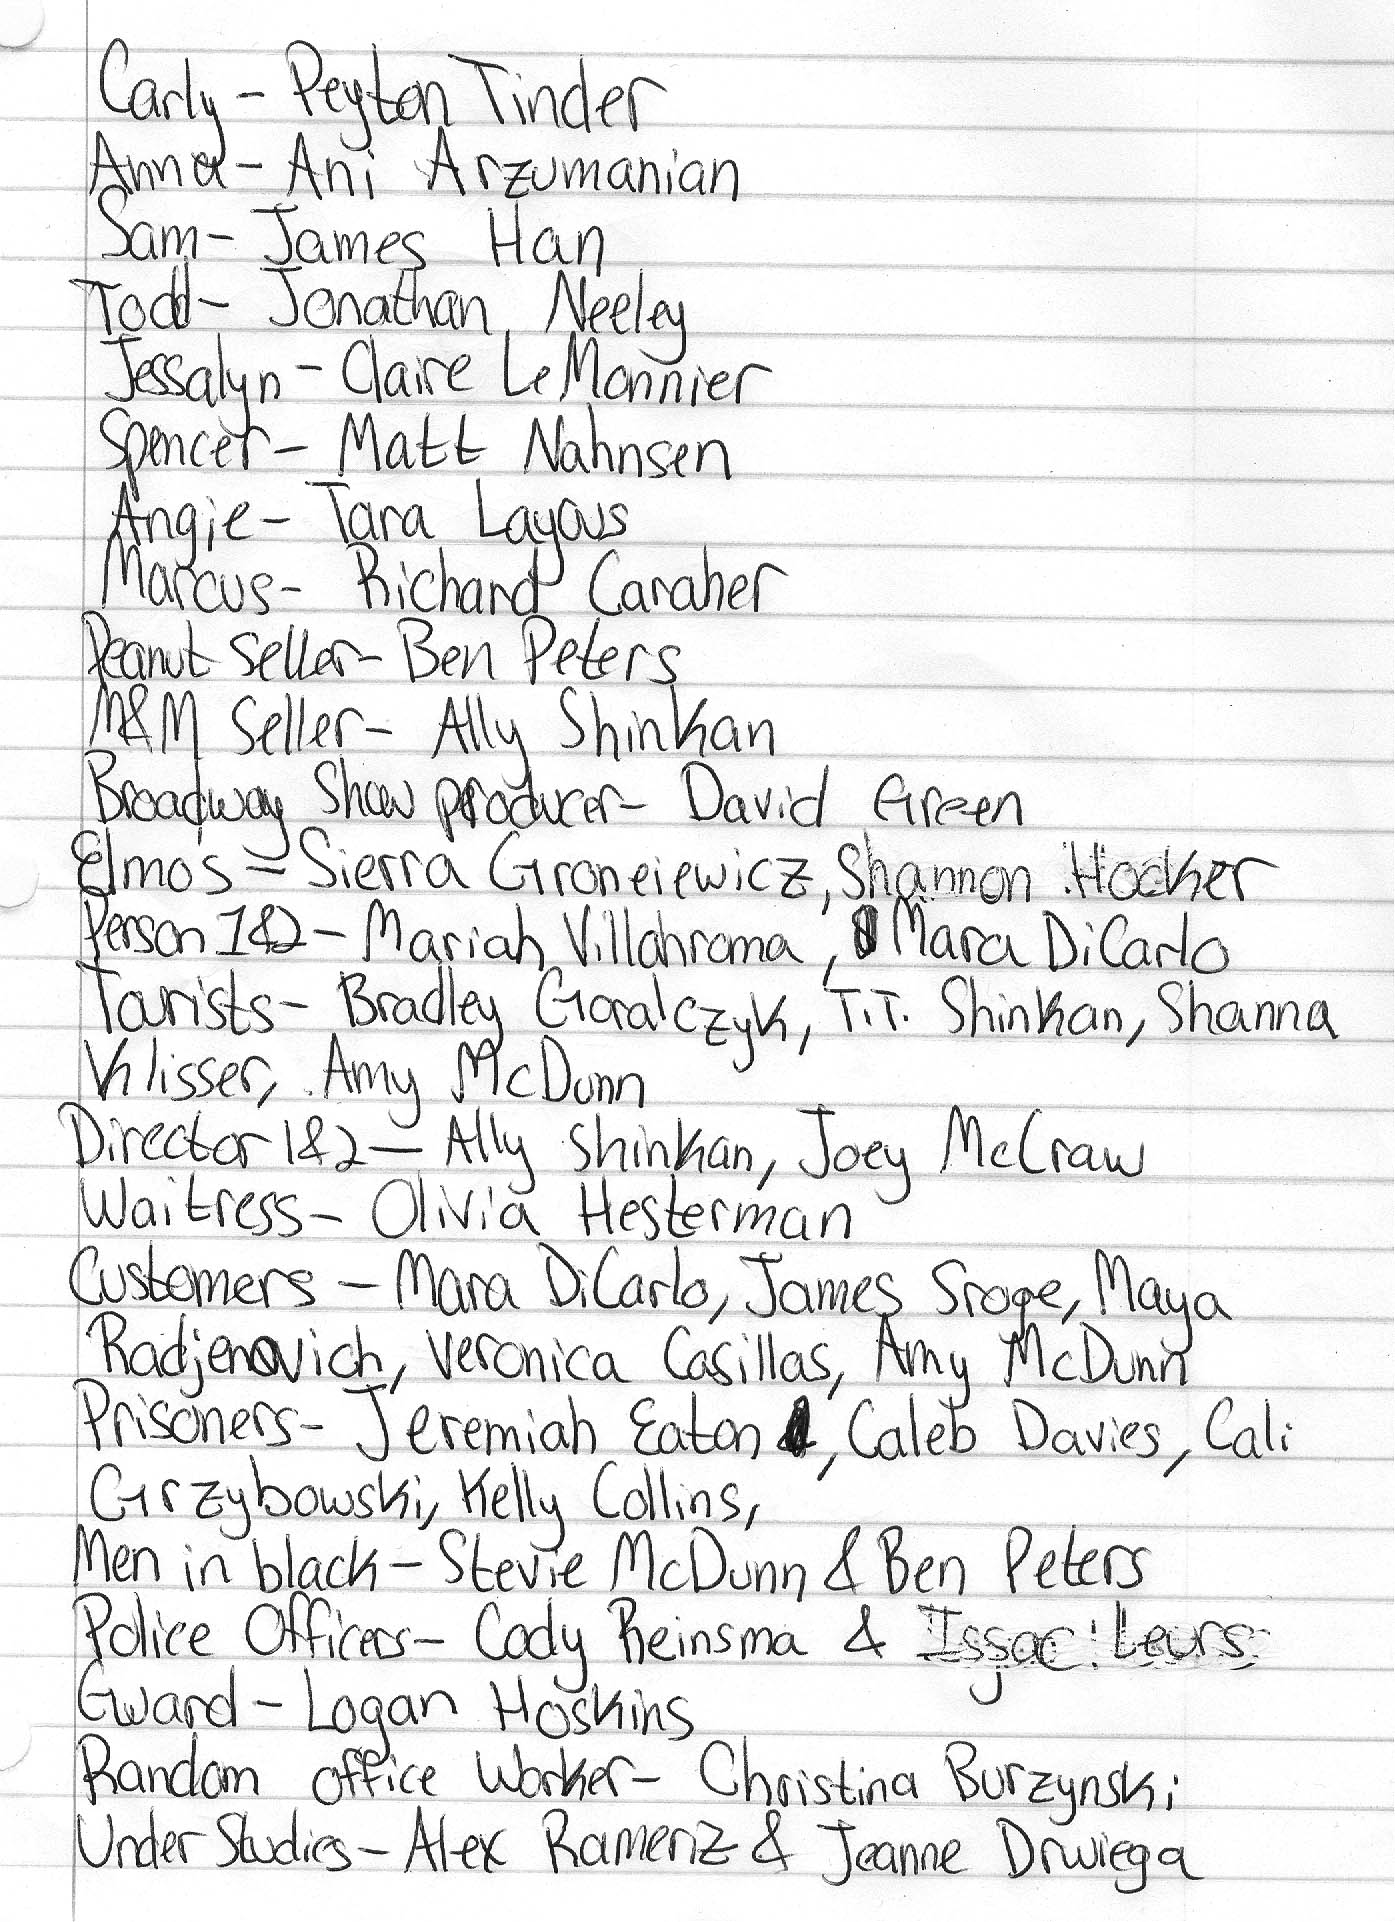 Carly - Peyton Tinder
Anna - Ani Arzumanian
Sam - James Han
Todd - Jonathan Neeley
Jessalyn - Claire LeMonnier
Spencer - Matt Nahnsen
Angie - Tara Layous
Marcus - Richard Caraher
Peanut Seller - Ben Peters
M&M Seller - Ally Shinkan
Broadway Show producer - David Green
Elmos - Sierra Groneiewicz, Shannon Hocker
Person 1&2 - Mariah Villahroma, Mara DiCarlo
Tourists - Bradley Goralczyk, T.T. Shinkan, Shanna
Klisser, Amy McDunn
Director 1&2 - Ally Shinkan, Joey McCraw
Waitress - Olivia Hesterman
Customers - Mara DiCarlo, James Sroge, Maya
Radjenovich, Veronica Casillas, Amy McDunn
Prisoners - Jeremiah Eaton, Caleb Davies, Cali
Grzybowski, Kelly Collins,
Men in black - Stevie McDunn & Ben Peters
Police Officers - Cody Reinsma & Issac Leurs
Gward - Logan Hoskins
Random office Worker - Christina Burzynski
Under Studies - Alex Rameriz & Jeanne Drwiega